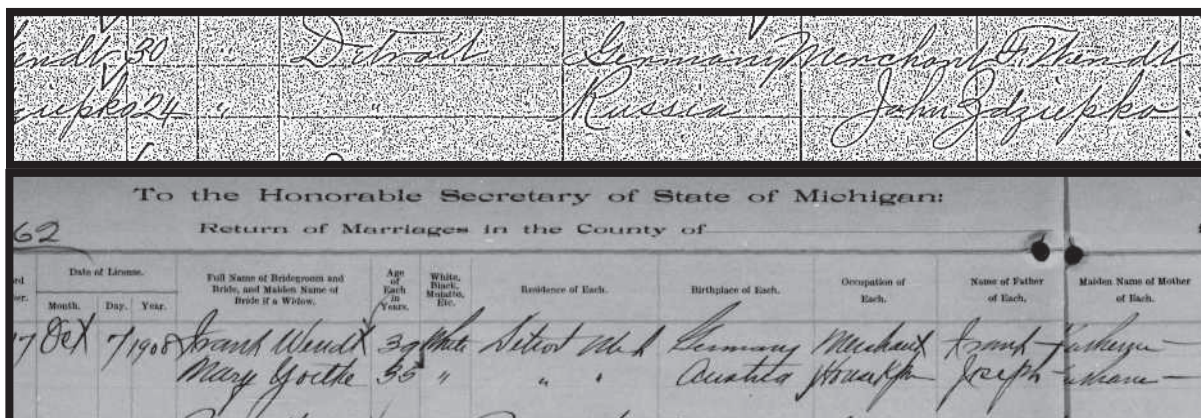 endt 30 " Detroit Germany Merchant F. Wendt
ziepko 24 " " Russia John Zdziepko
To the Honorable Secretary of State of Michigan:
62 Return of Marriages in the County of
Date of License. Full Name of Bridegroom and Bride, and Maiden Name of Bride if a Widow. Age of Each in Years. White, Black, Mulatto, Etc. Residence of Each. Birthplace of Each. Occupation of Each. Name of Father of Each. Maiden Name of Mother of Each.
Month. Day. Year.
17 Oct 7 1908 Frank Wendt 39 White Detroit Mich Germany Merchant Frank
Mary Goethe 35 " " " Austria Housekpr Joseph